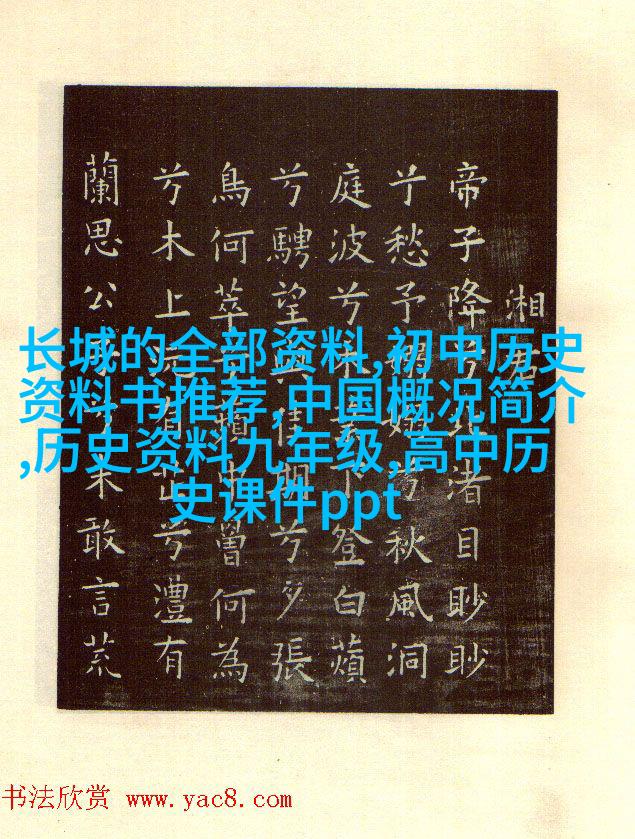 湘君
帝子降兮北渚目眇眇
兮愁予兮秋風洞
庭波兮木葉下登白蘋
兮騁望與佳期兮夕張
鳥何萃兮蘋中曾何為
兮木上沅有芷兮澧有
蘭思公子兮未敢言荒
长城的全部资料,初中历史
资料书推荐,中国概况简介
,历史资料九年级,高中历
史课件ppt
书法欣赏 www.yac8.com